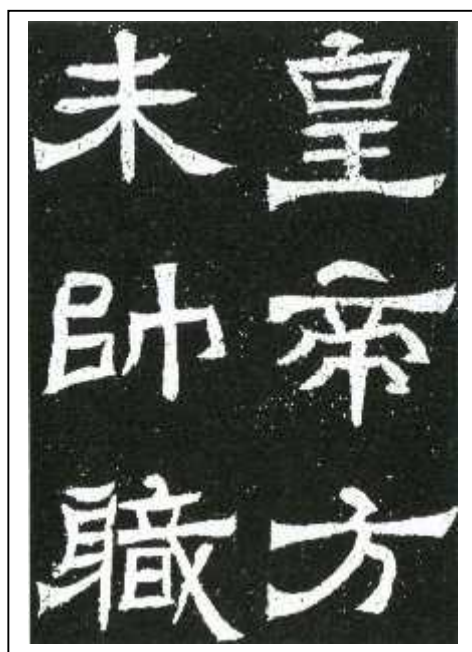 皇帝方
未帥職